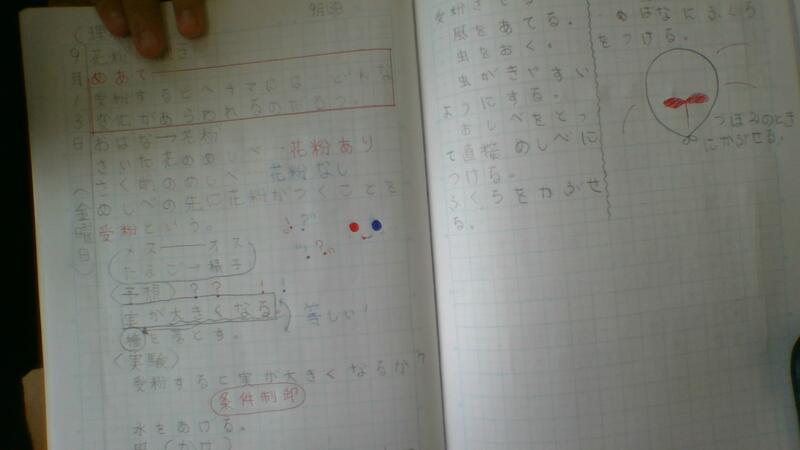 9月13日
(理
花粉
9月13日(金曜日)
めあて
受粉するとヘチマには どんな
変化があらわれるのだろう。
おばな→花粉
さいた花のめしべ・花粉あり
さく前のめしべ 花粉なし
めしべの先に花粉がつくことを
受粉という。
メス──オス
たまご→精子
〈予想〉??!!
実が大きくなる。
等しい!
種を落とす。
〈実験〉
受粉すると実が大きくなるか?
条件制御
水をあげる。
風(かぜ)
受粉させる
風をあてる。
虫をおく。
虫がきやすい
ようにする。
おしべをとっ
て直接めしべに
つける。
ふくろをかぶせ
る。
めばなにふくろ
をつける。
つぼみのとき
にかぶせる。